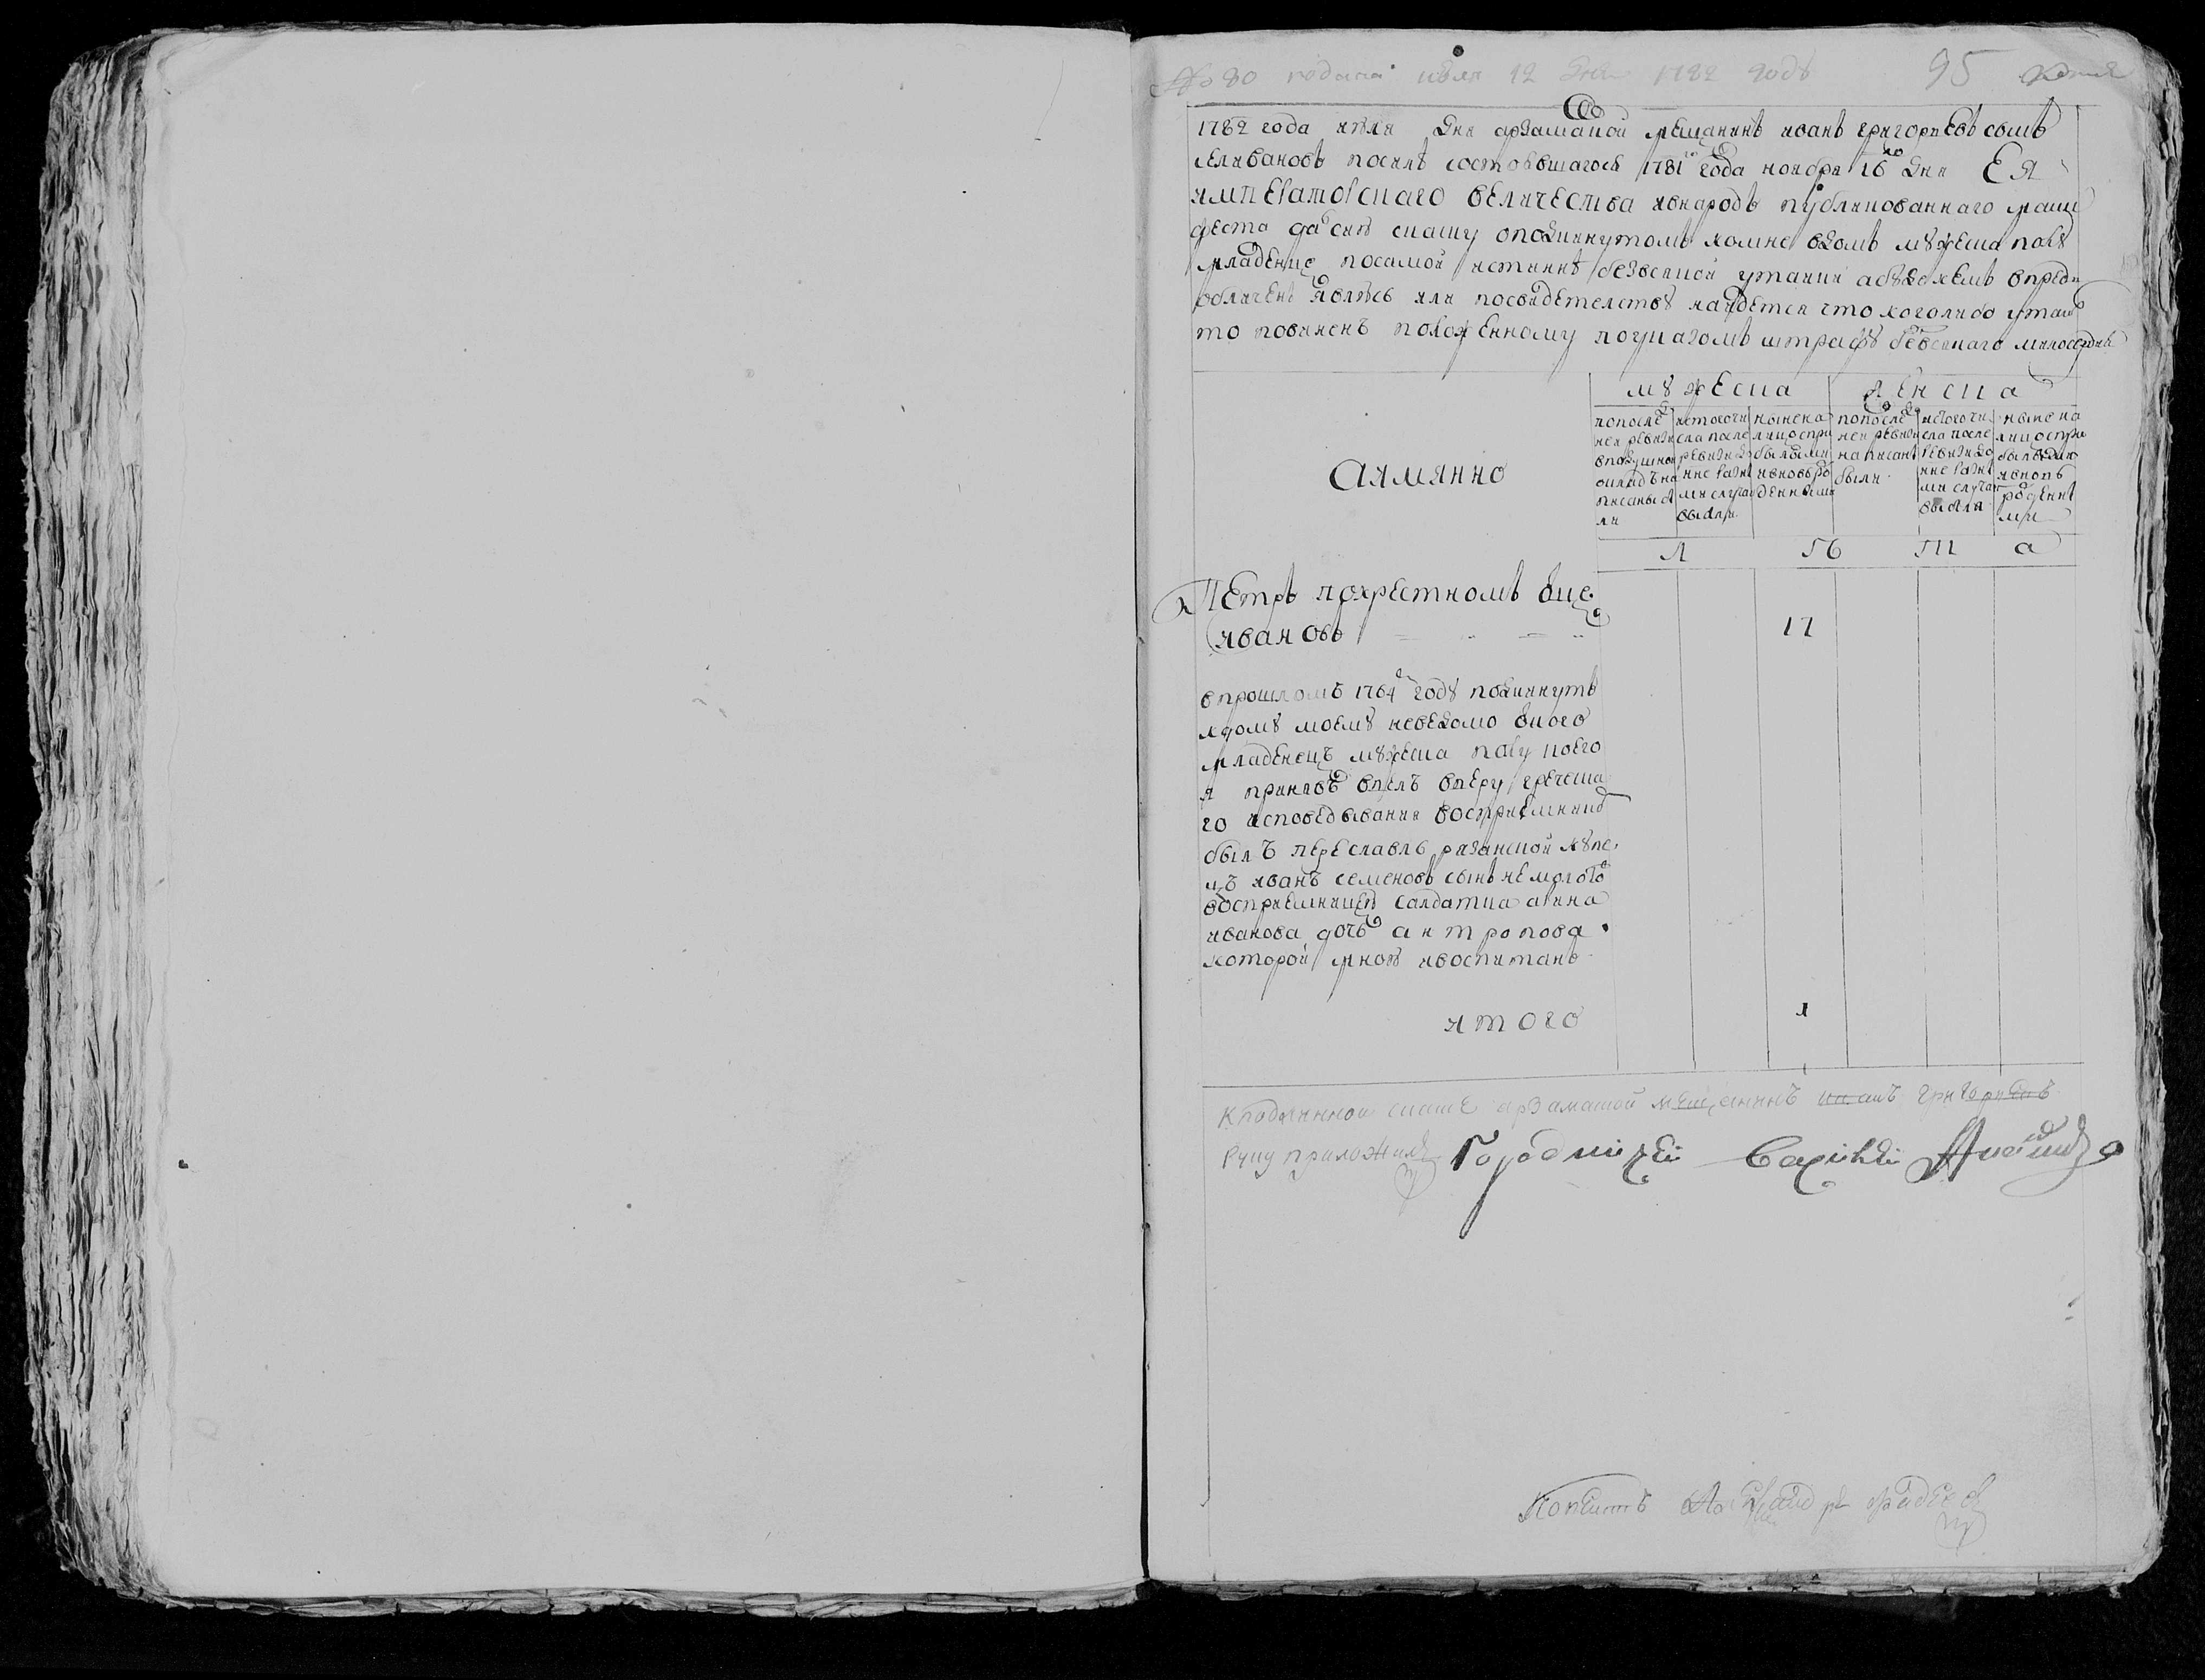 № 80 подана июля 12 дня 1782 годъ 95
1782 года июля дня арзамаской мещанинъ иванъ григорьевъ сынъ
селивановъ посилѣ состоявшагося 1781го года ноября 16го дня Ея
императорскаго величества инародъ публикованнаго мани
феста далъ сию скаску оподкинутомъ комне вдомъ мꙋжеска полꙋ
младенце посамой истиннѣ безвсякой утайки абꙋдежели впредь
обличенъ явлюсь или посвидетелствꙋ найдется что коголибо утаилъ
то повиненъ положенному поуказомъ штрафꙋ безвсякаго милосердия
мꙋжеска женска
Аимянно
попослед
ней ревизи
вподушной
окладъ на
писаны бы
ли
истогочи
сла после
ревизи до
ние разны
ми случаи
выбыли
ныне на
лицо спри
былыми
ивновьро
жденными
попосле
ней ревизи
написаны
были
истого чи
сла после
ревизи до
ние разны
ми случаи
выбыли
ныне на
лицо спри
былыми
ивновь
рожденны
ми
л ѣ т а
Петръ покрестномъ отце
ивановъ 17
впрошломъ 1764м годꙋ подкинутъ
кдомꙋ моемꙋ неведомо отково
младенецъ мꙋжеска полу коего
я принявъ крестилъ вверу греческа
го исповедывания восприемникъ
былъ переславля резанской кꙋпе
цъ иванъ семеновъ сынъ немолотой
восприемницей салдатка арина
иванова дочь антропова
которой мною ивоспитанъ
итого 1
Кподлинной скаске арзамаской мещанинъ иванъ григорьевъ
руку приложилъ Городничей
Копеистъ